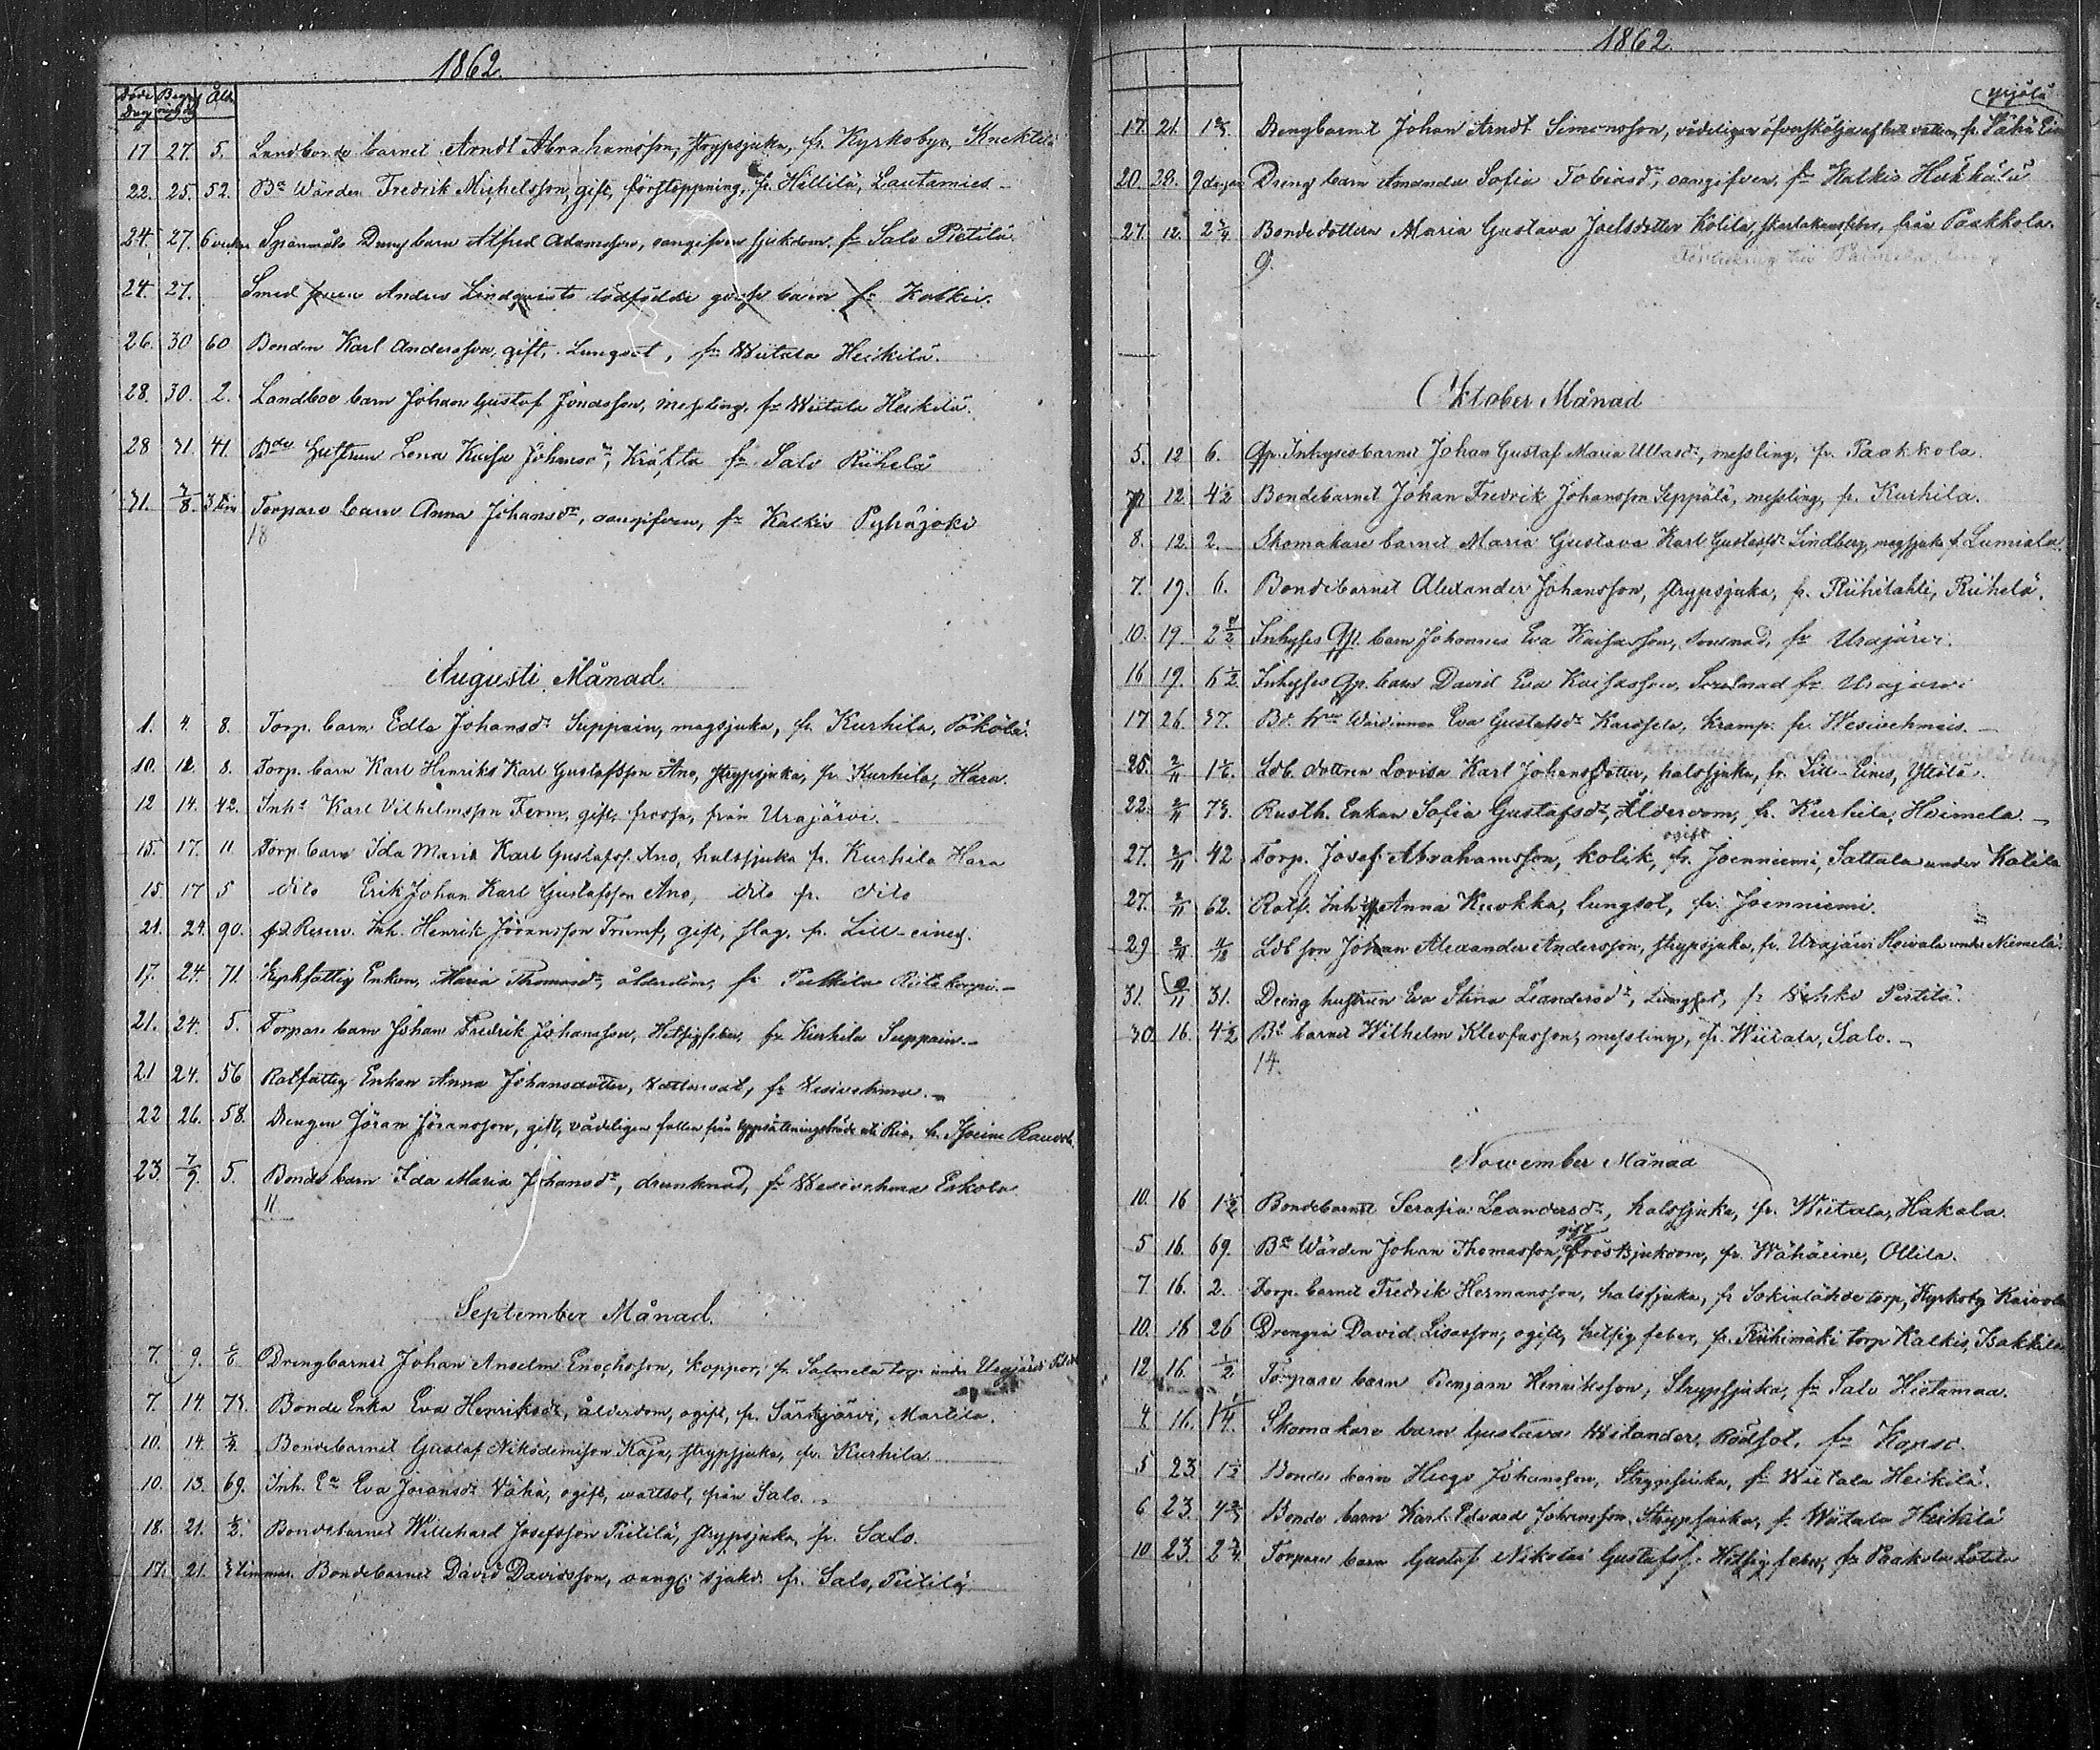 1862.
Döde Dag Begr. Åld.
17 27. 5. Landbonde barnet Arndt Abrahamsson, strypsjuka, fr. Kyrkobyn, Knektilä
22. 25. 52. Be Wärden Fredrik Michelsson, gift, förstoppning, fr. Hillilä, Lautamies -
24. 27. 6 veckor Spanmåls Dreng barn Alfred Adamsson, oangifven sjukdom, fr Salo Pietilä.
24. 27. Smed Andres Lindqvists dödfödde barn fr Kalkis.
26. 30 60 Bonden Karl Andersson, gift, Lungsot, fr Wiitala Heikilä.
28. 30. 2. Landboe barn Johan Gustaf Jonasson, messling, fr Wiitala Heikilä.
28 31. 41. Bde Hustrun Lena Kaisa Johansdr, Kräfta fr Salo Riihelä
31. 3/8. 3 Torpare barn Anna Johansdr, oangifven, fr Kalkis Pyhäjoki
18
Augusti Månad.
1. 4. 8. Torp. barn Edla Johansdr Suppain, magsjuka, fr. Kurhila, Pökölä.
10. 12. 8. Torp. barn Karl Henriks Karl Gustafsson Ano, strypsjuka, fr Kurhila, Hara.
12 14. 42. Inhs Karl Vilhelmsson Ferm, gift, frossa, från Urajärvi.
15. 17. 11 Torp. barn Ida Maria Karl Gustafsd. Ano, halssjuka fr. Kurhila Hara
15 17 5 dito Erik Johan Karl Gustafsson Ano, dito fr. dito
21. 24 90. fd Reserv. Inh. Henrik Jöransson Trumf, gift, slag, fr. Lill-eines.
17. 24. 71. Kyrkfattig Enkan, Maria Thomasdr, ålderdom, fr Pulkila Riitakorpi. -
21. 24. 5. Torpare barn Johan Fredrik Johansson, Hetsigfeber, fr Kurhila Suppain. -
21 24. 56 Rotfattig Enkan Anna Johansdotter, Vattusot, fr Vesivehma. -
22 26. 58. Drengen Jöran Jöransson, gift, vådeligen fallen från uppsättningsbräde uti Ria, fr.
23. 7/9. 5. Bonde barn Ida Maria Johansdr, drunknad, fr Wesivehma Eskola
11
September Månad.
7. 9. Drengbarnet Johan Anselm Enochsson, koppor, fr. Salmela torp under Urajärvi
7. 14. 73. Bonde Enka Eva Henriksdr, ålderdom, ogift, fr. Särkijärvi, Martila.
10. 14. Bondebarnet Gustaf Nikodemisson Kaja, strypsjuka, fr. Kurhila
10. 13. 69. Inh. En Eva Joransdr Vähä, ogift, vattsot, från Salo. -
18. 21. 1/2. Bondebarnet Willehard Josefsson Pietilä, strypsjuka, fr. Salo.
17. 21. 3 timmar. Bondebarnet David Davidsson, oangif. sjukd. fr. Salo, Pietilä
1862.
Yrjölä
17 21. Drengbarnet Johan Arndt Simonsson, vådeligen öfverskoljd af het vatten, fr.
20. 28. 9 dagar Dreng barn Amanda Sofia Tobiasdr, oangifven, fr Kalkis Häkkälä
27. 12. Bondedottern Maria Gustava Joelsdotter Kotila, skarlakansfeber, från Paakkola.
9.
Oktober Månad
5. 12 6. Inhysesbarnet Johan Gustaf Maria Ullasdr, messling, fr. Paakkola.
12 4 1/2 Bondebarnet Johan Fredrik Johansson Seppälä, messling, fr. Kurhila.
8. 12. 2. Skomakare barnet Maria Gustava Karl Gustafsdr Lindberg, magsjuka f. Lumiala.
7. 19. 6. Bondebarnet Alexander Johansson, strypsjuka, fr. Riihilahti, Riihelä.
10. 19 Inhyses barn Johannes Eva Kaisasson, fr Urajärvi.
16 19. 6 1/2 Inhyses barn David Eva Kaisasson, fr Urajärvi
17 26. 37. Bd. Wärdinnan Eva Gustafsdr Karossela, kramp. fr. Wesivehmais. -
25. 2/11 Ldb. dottren Lovisa Karl Johansdotter, halssjuka, fr. Lill-Eines, Ylölä.
22. 2/11 73. Rusth. Enkan Sofia Gustafsdr, Ålderdom, fr. Kurhila, Heimela. -
27. 2/11 42 Torp. Josef Abrahamsson, kolik, ogift fr. Joenniemi, Sattala under Kotila
27. 2/11 62. Rotf. Inh. Anna Kuokka, lungsot, fr. Joenniemi.
29 2/11 Ldb son Johan Alexander Andersson, strypsjuka, fr. Urajärvi Hoivala under Niemelä.
31. 9/11 31. Dreng hustrun Eva Stina Leandersdr, Lungsot, fr Pietilä.
30. 16. 4 1/2 Bd barnet Wilhelm Kleofasson, messling, fr. Wiitala, Salo. -
14.
November Månad
10. 16 1 1/2 Bondebarnet Serafia Leandersdr, halssjuka, fr. Wiitala, Hakala
5 16. 69. Be Wärden Johan Thomasson, gift bröstsjukdom, fr. Wähäeine, Ollila.
7 16. 2. Torp. barnet Fredrik Hermansson, halssjuka, fr torp, Kyrkoby Kaivola
10. 16 26 Drengen David Lisasson, ogift, hetsig feber, fr. Riihimäki torp Kalkis,
12 16. 1/2 Torpare barn Benjam Henriksson, Strypsjuka, fr Salo Hietamaa.
4. 16. 1/4. Skomakare barn Gustava Wilander, Rödsot, fr
5 23 1 1/2 Bonde barn Hugo Johansson, Strypsjuka, fr Wiitala Heikilä.
6 23. Bonde barn Karl Edvard Johansson, Strypsjuka, f. Wiitala Heikilä
10 23. Torpare barn Gustaf Nikolai Gustafss. Hetsig feber, fr Paakola